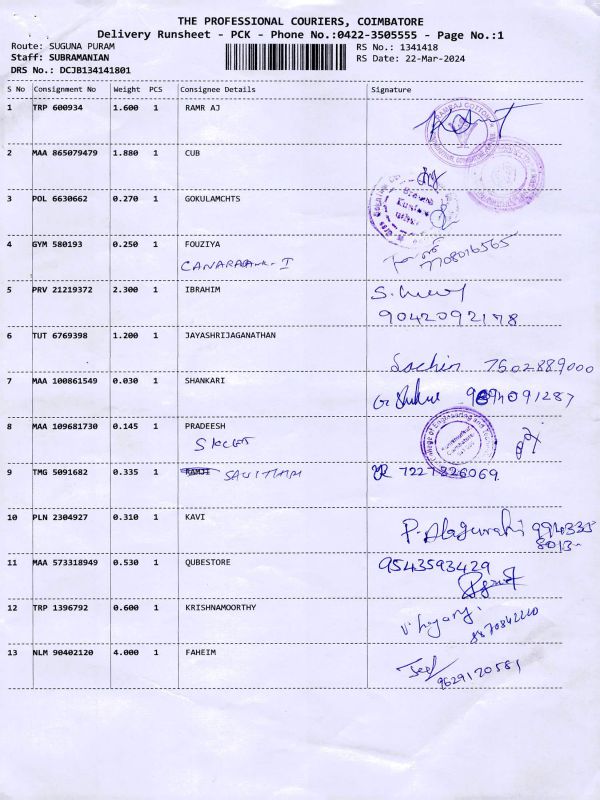 THE PROFESSIONAL COURIERS, COIMBATORE
Delivery Runsheet - PCK - Phone No.:0422-3505555 - Page No.:1
Route: SUGUNA PURAM RS No.: 1341418
Staff: SUBRAMANIAN RS Date: 22-Mar-2024
DRS No.: DCJB134141801
S No Consignment No Weight PCS Consignee Details Signature
1 TRP 600934 1.600 1 RAMR AJ
2 MAA 865079479 1.880 1 CUB
3 POL 6630662 0.270 1 GOKULAMCHTS
4 GYM 580193 0.250 1 FOUZIYA
CANARABANK-I 7708016565
5 PRV 21219372 2.300 1 IBRAHIM
9042092178
6 TUT 6769398 1.200 1 JAYASHRIJAGANATHAN
Sachin 7502889000
7 MAA 100861549 0.030 1 SHANKARI
9894091287
8 MAA 109681730 0.145 1 PRADEESH
College of Engineering and
Coimbatore
9 TMG 5091682 0.335 1 RAMJI SAVITHAM 7227826069
10 PLN 2304927 0.310 1 KAVI
P. Alagurahi 994335
8013-
11 MAA 573318949 0.530 1 QUBESTORE 9543593429
12 TRP 1396792 0.600 1 KRISHNAMOORTHY
8870842210
13 NLM 90402120 4.000 1 FAHEIM
9629170581